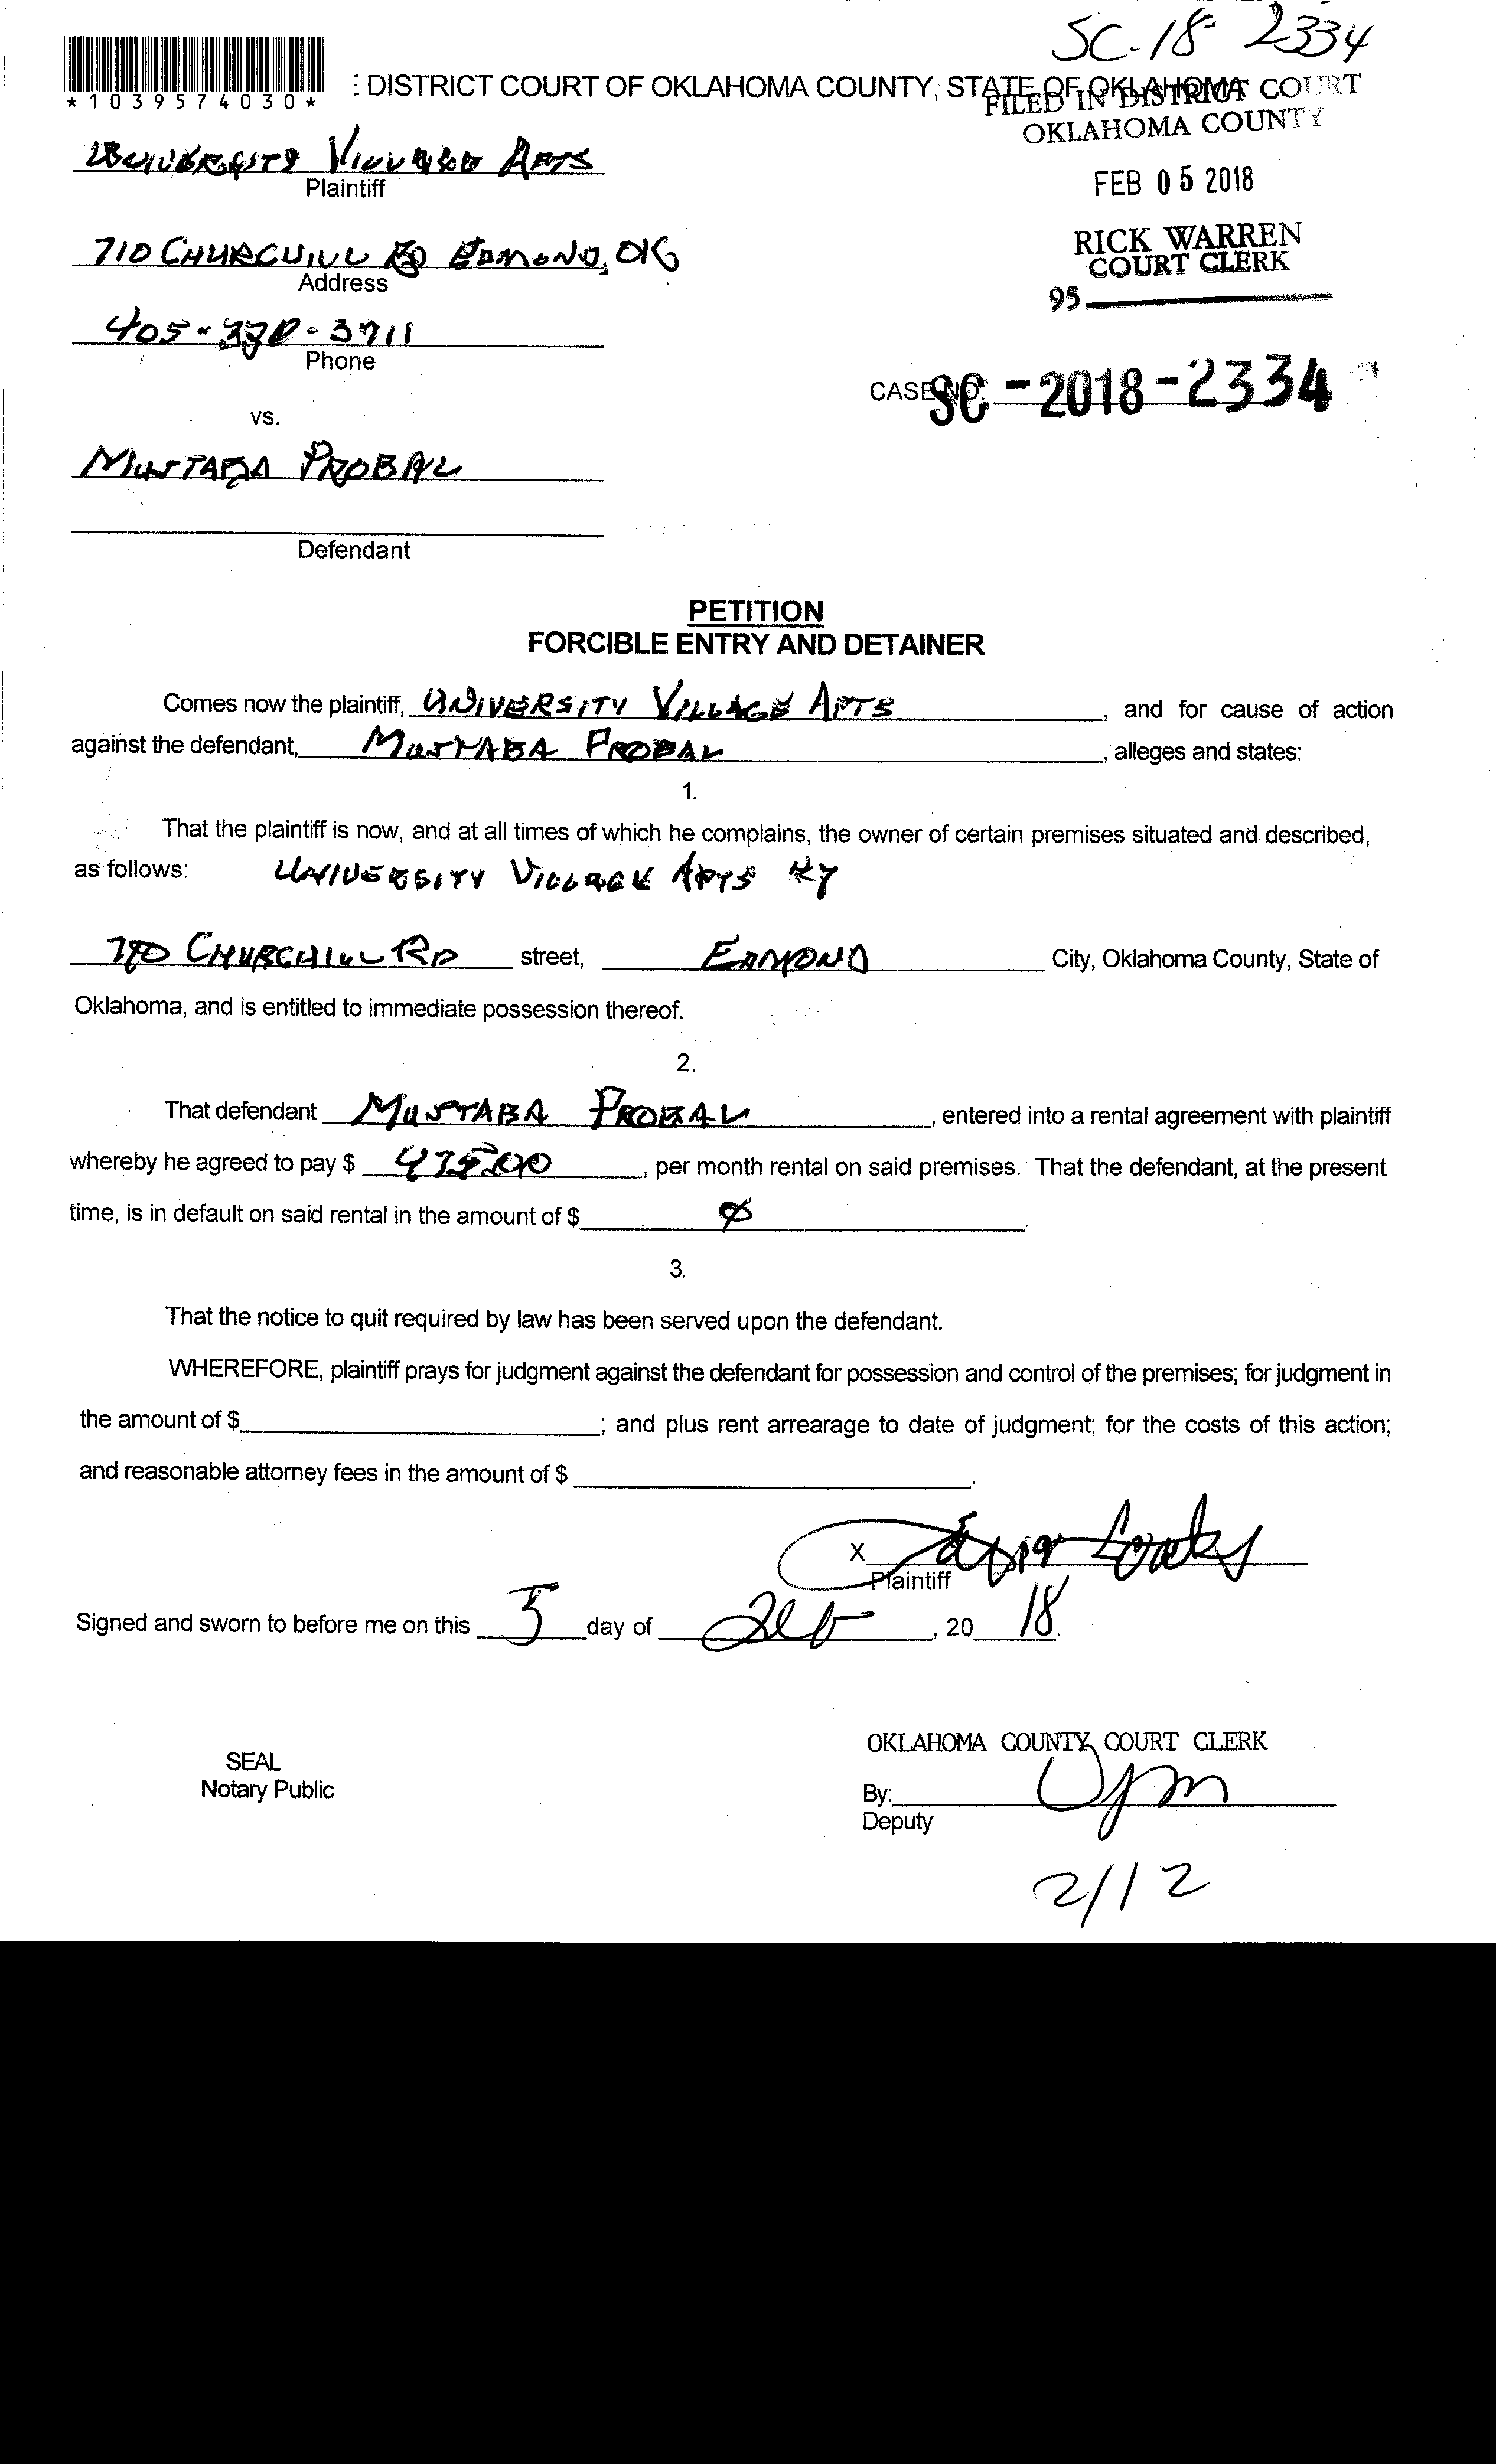 SC-18-2334
*1039574030*
: DISTRICT COURT OF OKLAHOMA COUNTY, STATE OF OKLAHOMA
FILED IN DISTRICT COURT
OKLAHOMA COUNTY
UNIVERSITY VILLAGE APTS
Plaintiff
FEB 05 2018
710 CHURCHILL RD EDMOND, OK
Address
RICK WARREN
COURT CLERK
95
405-330-3711
Phone
CASE NO. SC-2018-2334
vs.
MUSTABA PROBAL
Defendant
PETITION
FORCIBLE ENTRY AND DETAINER
Comes now the plaintiff, UNIVERSITY VILLAGE APTS, and for cause of action
against the defendant, MUSTABA PROBAL, alleges and states:
1.
That the plaintiff is now, and at all times of which he complains, the owner of certain premises situated and described,
as follows: UNIVERSITY VILLAGE APTS #7
710 CHURCHILL RD street, EDMOND City, Oklahoma County, State of
Oklahoma, and is entitled to immediate possession thereof.
2.
That defendant MUSTABA PROBAL, entered into a rental agreement with plaintiff
whereby he agreed to pay $ 475.00, per month rental on said premises. That the defendant, at the present
time, is in default on said rental in the amount of $ Ø.
3.
That the notice to quit required by law has been served upon the defendant.
WHEREFORE, plaintiff prays for judgment against the defendant for possession and control of the premises; for judgment in
the amount of $ ; and plus rent arrearage to date of judgment; for the costs of this action;
and reasonable attorney fees in the amount of $ .
X
Plaintiff
Signed and sworn to before me on this 5 day of Feb, 20 18.
OKLAHOMA COUNTY COURT CLERK
SEAL
Notary Public
By:
Deputy
2/12